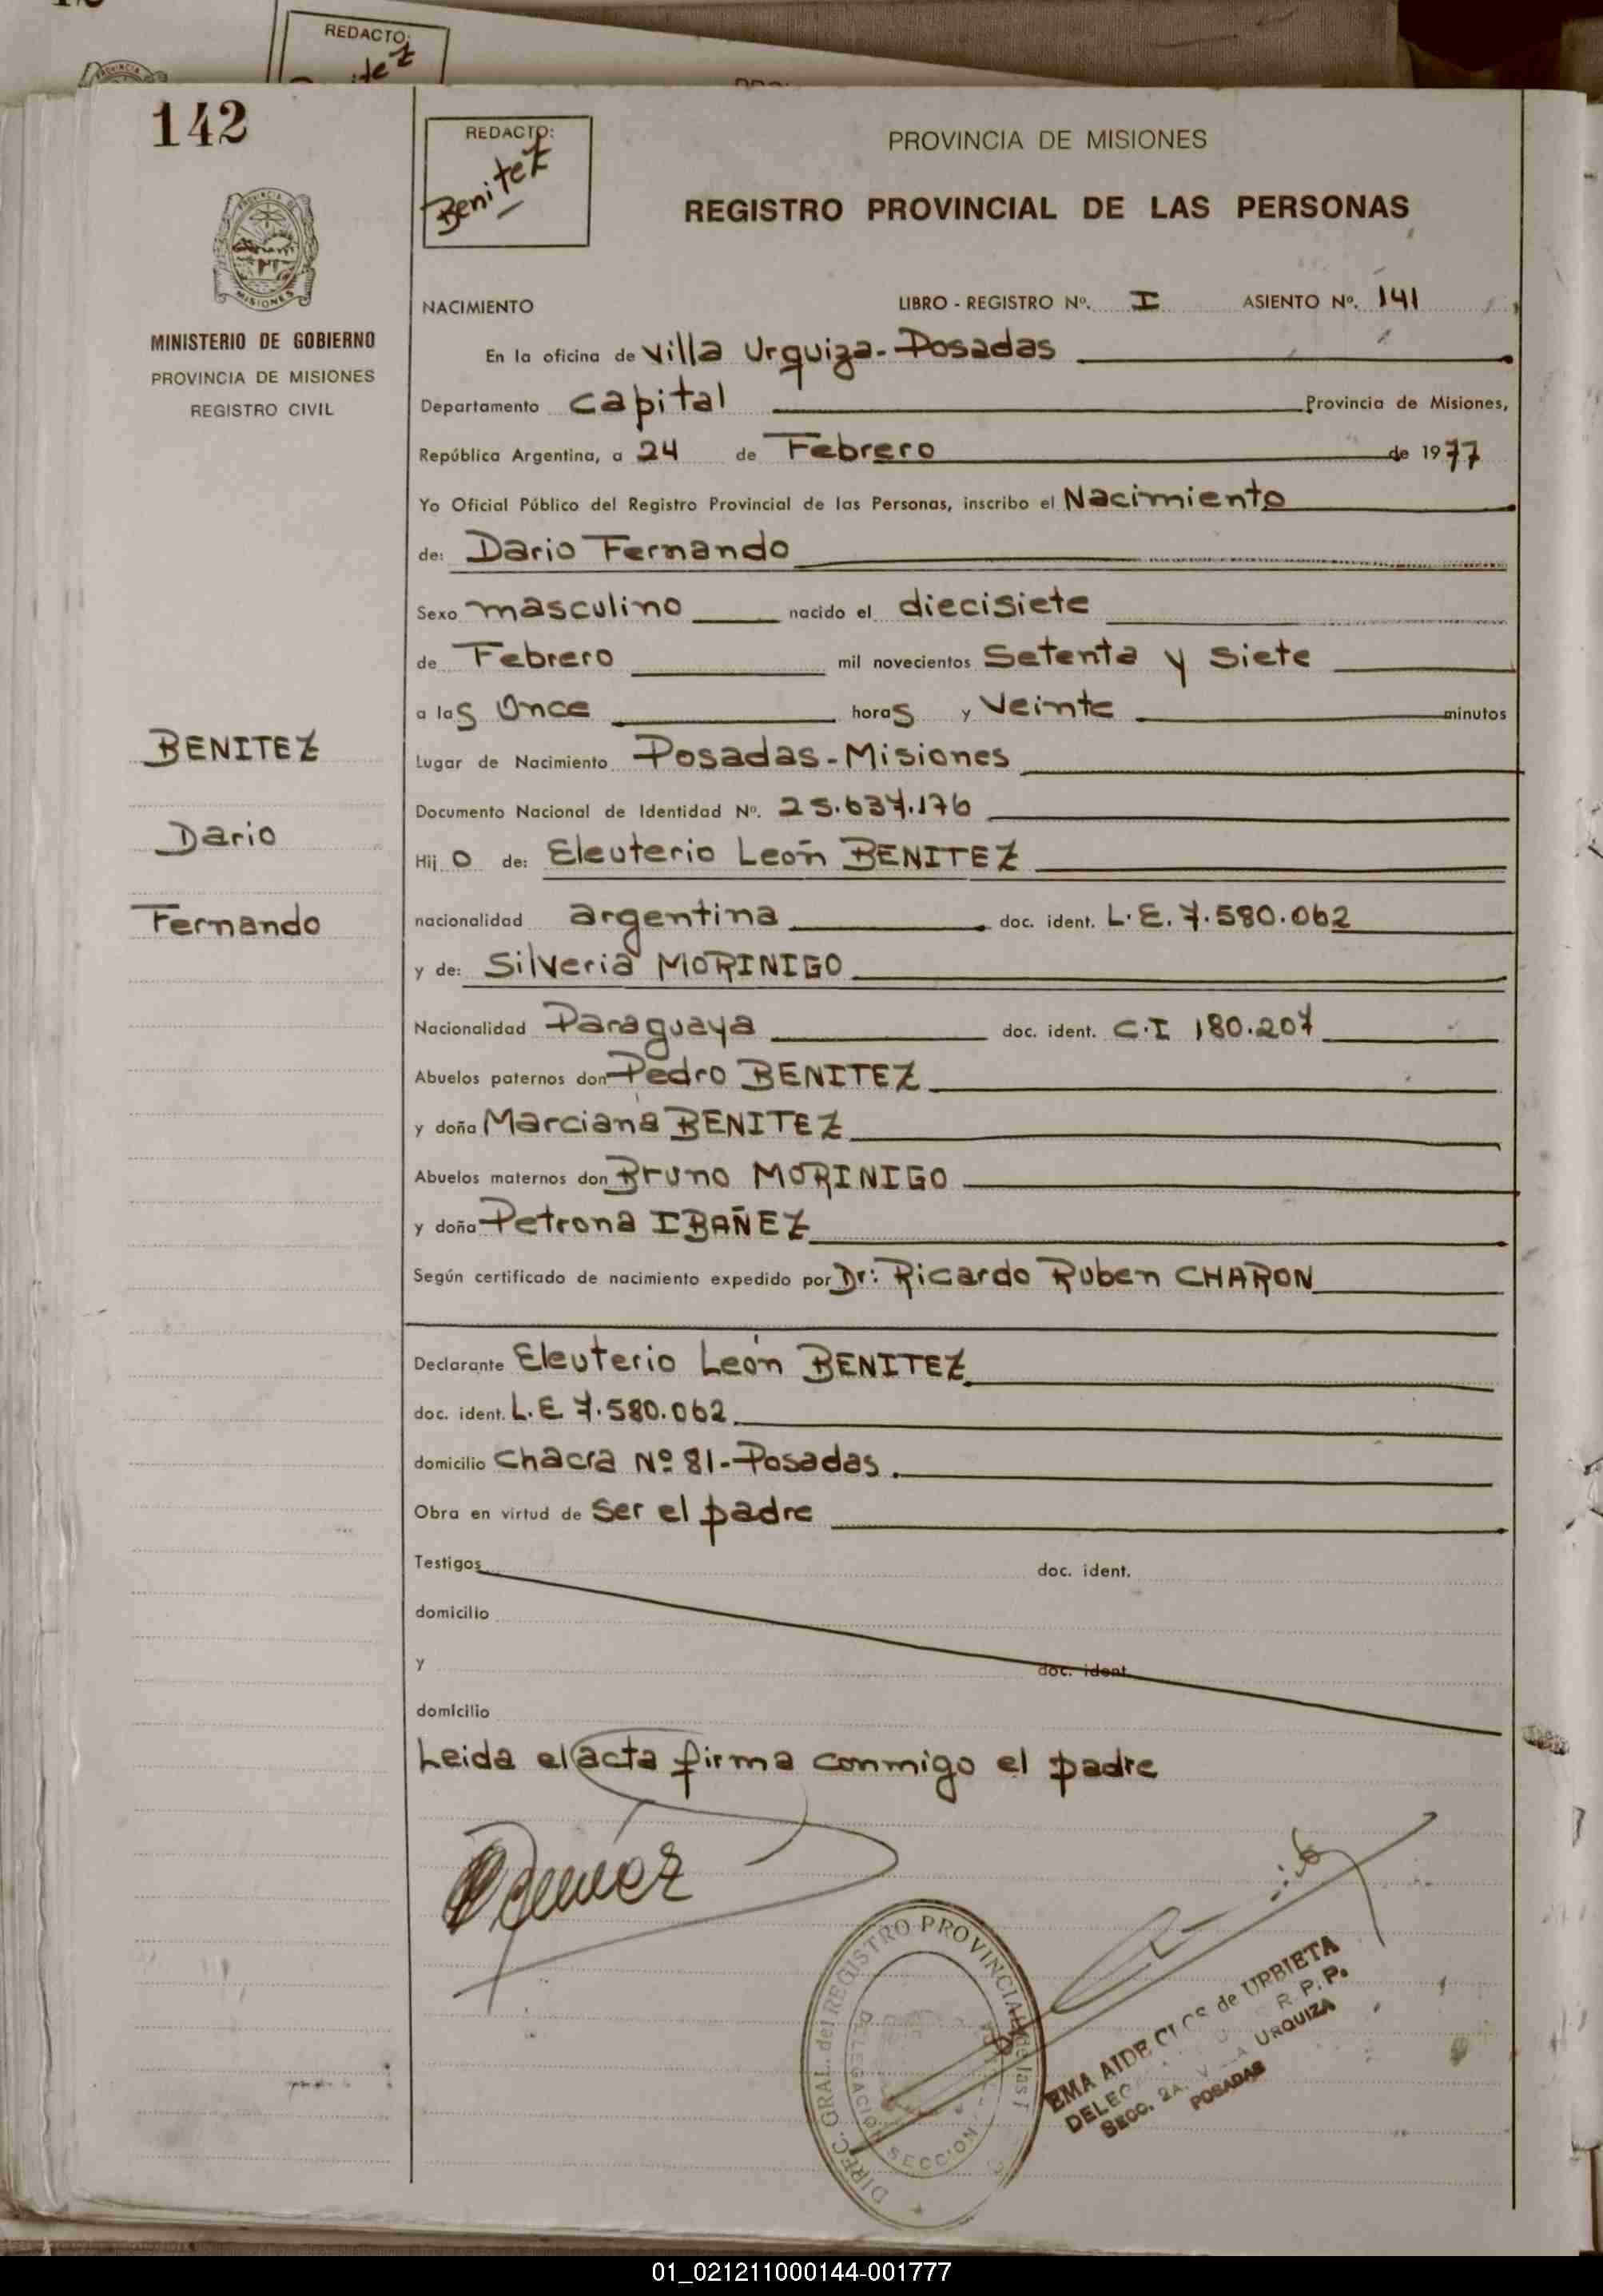 REDACTO:
142
REDACTO:
Benitez
PROVINCIA DE MISIONES
REGISTRO PROVINCIAL DE LAS PERSONAS
MISIONES
MINISTERIO DE GOBIERNO
PROVINCIA DE MISIONES
REGISTRO CIVIL
NACIMIENTO LIBRO - REGISTRO Nº. I ASIENTO Nº. 141
En la oficina de Villa Urquiza - Posadas
Departamento Capital Provincia de Misiones,
República Argentina, a 24 de Febrero de 1977
Yo Oficial Público del Registro Provincial de las Personas, inscribo el Nacimiento
de: Dario Fernando
Sexo masculino nacido el diecisiete
de Febrero mil novecientos Setenta y Siete
a las Once horas y Veinte minutos
BENITEZ
Dario
Fernando
Lugar de Nacimiento Posadas - Misiones
Documento Nacional de Identidad Nº. 25.637.176
Hij o de: Eleuterio León BENITEZ
nacionalidad argentina doc. ident. L.E. 7.580.062
y de: Silveria MORINIGO
Nacionalidad Paraguaya doc. ident. C.I 180.207
Abuelos paternos don Pedro BENITEZ
y doña Marciana BENITEZ
Abuelos maternos don Bruno MORINIGO
y doña Petrona IBAÑEZ
Según certificado de nacimiento expedido por Dr: Ricardo Ruben CHARON
Declarante Eleuterio León BENITEZ
doc. ident. L.E 7.580.062
domicilio Chacra Nº 81 - Posadas.
Obra en virtud de Ser el padre
Testigos doc. ident.
domicilio
y doc. ident.
domicilio
Leida el acta firma conmigo el padre
DIREC. GRAL. del REGISTRO PROVINCIAL de las
DELEGACION SECCION
EMA AIDE de URBIETA
R. P. P.
SECC. 2A. URQUIZA
POSADAS
01_021211000144-001777